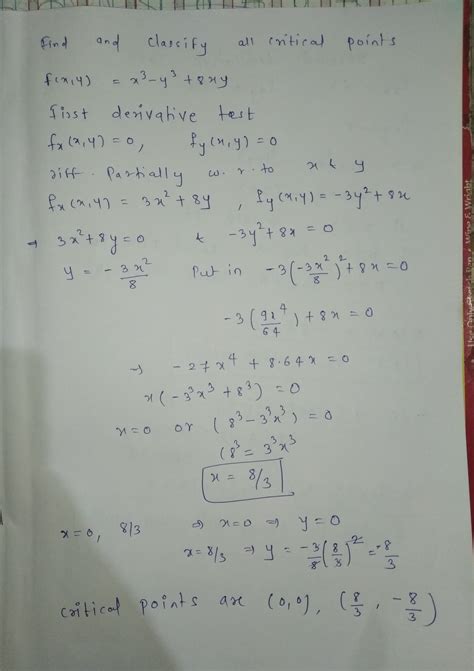 Find and classify all critical points
f(x,y) = x³-y³+8xy
first derivative test
fx(x,y)=0, fy(x,y)=0
diff. Partially w.r.to x & y
fx(x,y) = 3x²+8y , fy(x,y)=-3y²+8x
⇒ 3x²+8y=0 & -3y²+8x=0
y = -3x²/8 Put in -3(-3x²/8)²+8x=0
-3(9x⁴/64)+8x=0
→ -27x⁴+8.64x=0
x(-3³x³+8³)=0
x=0 or (8³-3³x³)=0
(8³=3³x³
x=8/3
x=0, 8/3 ⇒ x=0 ⇒ y=0
x=8/3 ⇒ y=-3/8(8/3)²=-8/3
critical points are (0,0), (8/3, -8/3)
Use Only Rorito Pen